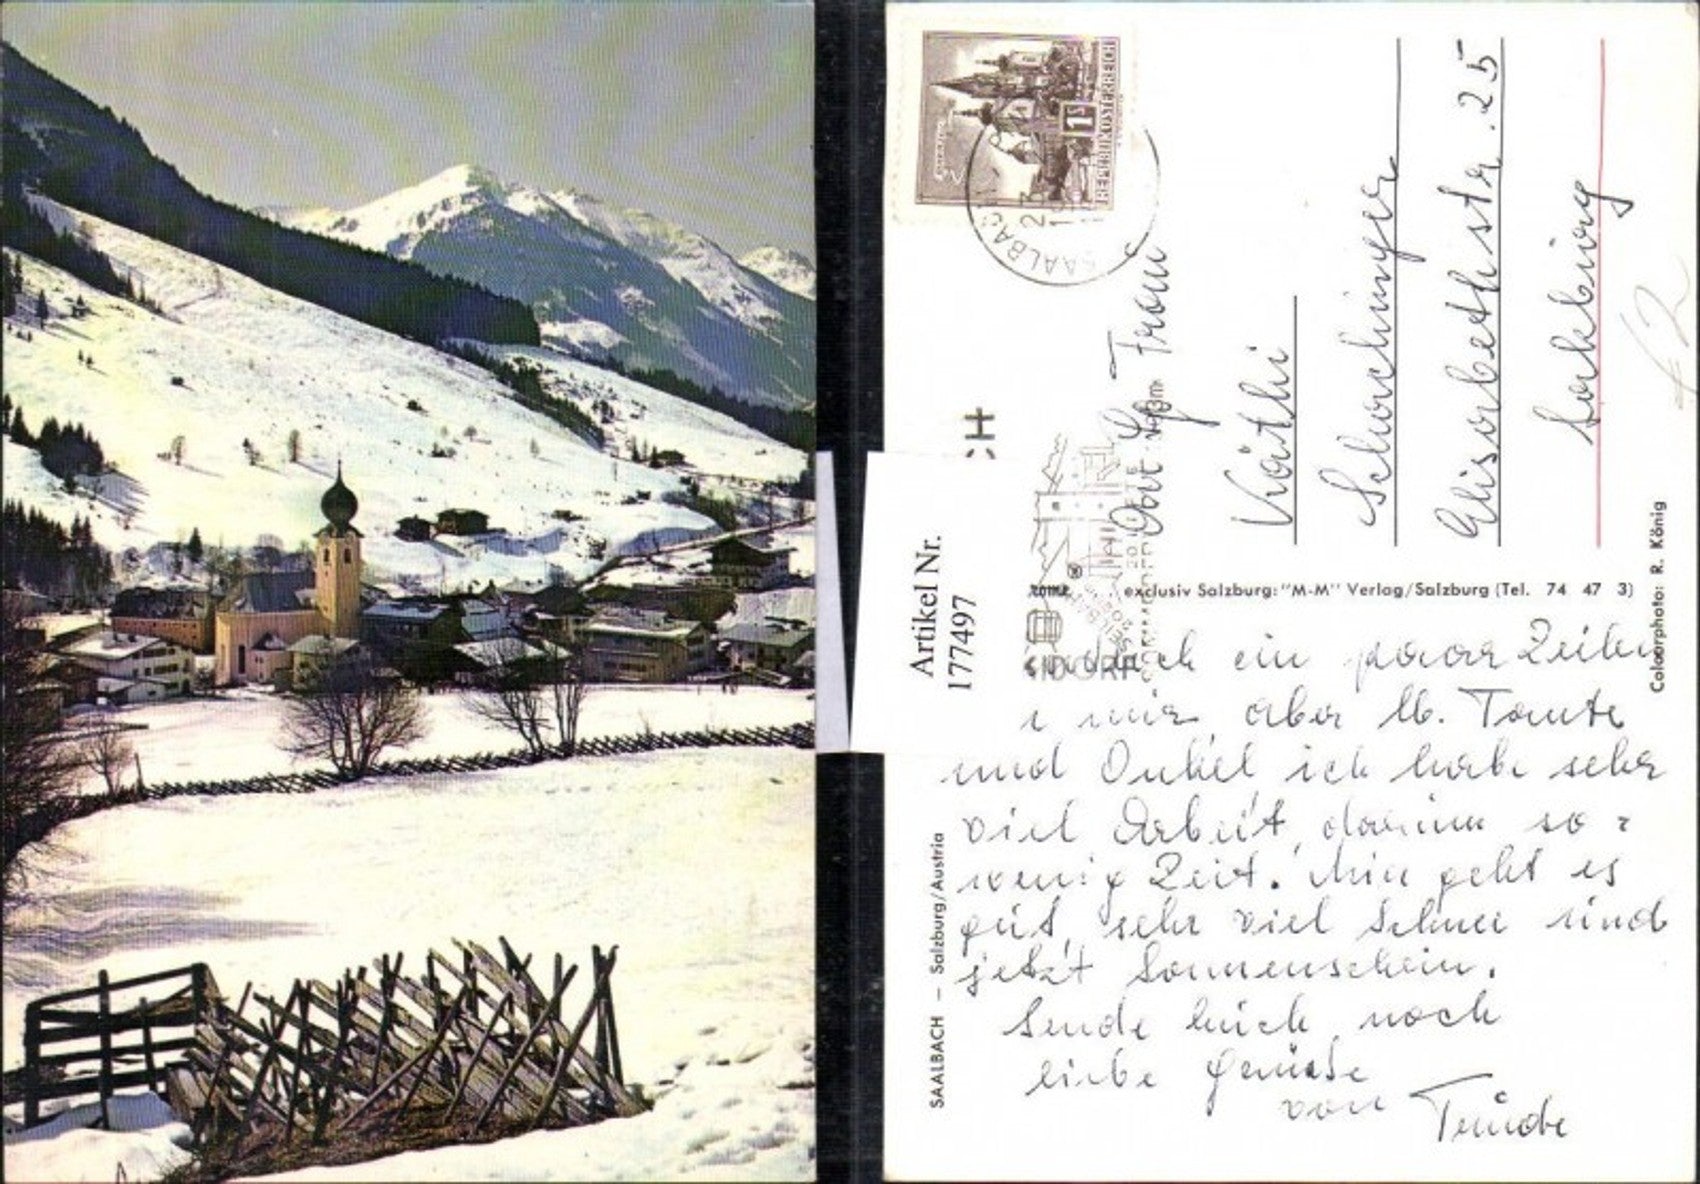 REPUBLIK ÖSTERREICH
1S
SAALBACH
23
CH
Artikel Nr.
177497
IDORF
Frau
Käthi
Schachinger
Elisabethstr. 25
Salzburg
exclusiv Salzburg: "M-M" Verlag/Salzburg (Tel. 74 47 3)
Colorphoto: R. König
SAALBACH – Salzburg/Austria
ein paar Zeilen
mir, aber lb. Tante
und Onkel ich habe sehr
viel Arbeit, darum so
wenig Zeit. Mir geht es
gut, sehr viel Schnee und
jetzt Sonnenschein.
Sende Euch noch
liebe Grüsse
von Trude